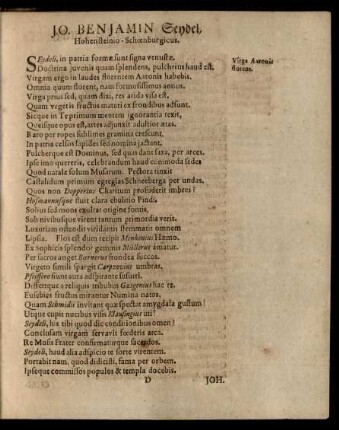 JO. BENJAMIN Seydel,
Hohensteinio-Schœnburgicus.
SEydeli, in patria formæ sunt signa vetustæ.
Doctrina juvenis quam splendens, pulchrius haud est.
Virgam ergo in laudes florentem Aaronis habebis.
Virga Aaronis
florens.
Omnia quum florent, nam formosissimus annus.
Virga prius sed, quam dixi, res arida visa est,
Quam vegetis fructus maturi ex frondibus adsunt.
Sicque in Te primum mentem ignorantia texit,
Queisque opus est, artes adjunxit adultior ætas.
Raro per rupes sublimes gramina crescunt.
In patria celsus lapides sed nomina jactant.
Pulcherque est Dominus, sed quas dant saxa, per arces.
Ipse imo quereris, celebrandum haud commoda sedes
Quod natale solum Musarum. Pectora tinxit
Castalidum primum egregias Schneeberga per undas.
Quos non Dopperius Charitum prosiderit imbres?
Hofmannusque fluit clara ebullitio Pindi.
Solius sed mons exultat origine fontis,
Sub nivibusque virent tantum primordia veris.
Luxuriam ostendit viridantis stemmatis omnem
Lipsia. Flos est dum recipit Menkenius Hæmo.
Ex sophicis splendor gemmis Mülleriu imatur.
Per sacros anget Bornerus frondea succos.
Virgeto simili spargit Carpzovius umbras,
Pfeiffero sunt aura adspirante susurri.
Differtque a reliquis tribubus Guzgenius hac re.
Eusebies fructus mirantur Numina natos.
Quam Schmidii invitant quoque sparte amygdala gustum!
Utque cupit nucibus visu Klausingius uti!
Seydeli, his tibi quod dic conditionibus omen?
Conclusam virgam servavit fœderis arca.
Re Mosis frater confirmaturque sacerdos.
Seydeli, haud alia adspicio te sorte virentem.
Portabit nam, quod didicisti, fama per orbem.
Ipseque commissos populos & templa docebis.
D
JOH.